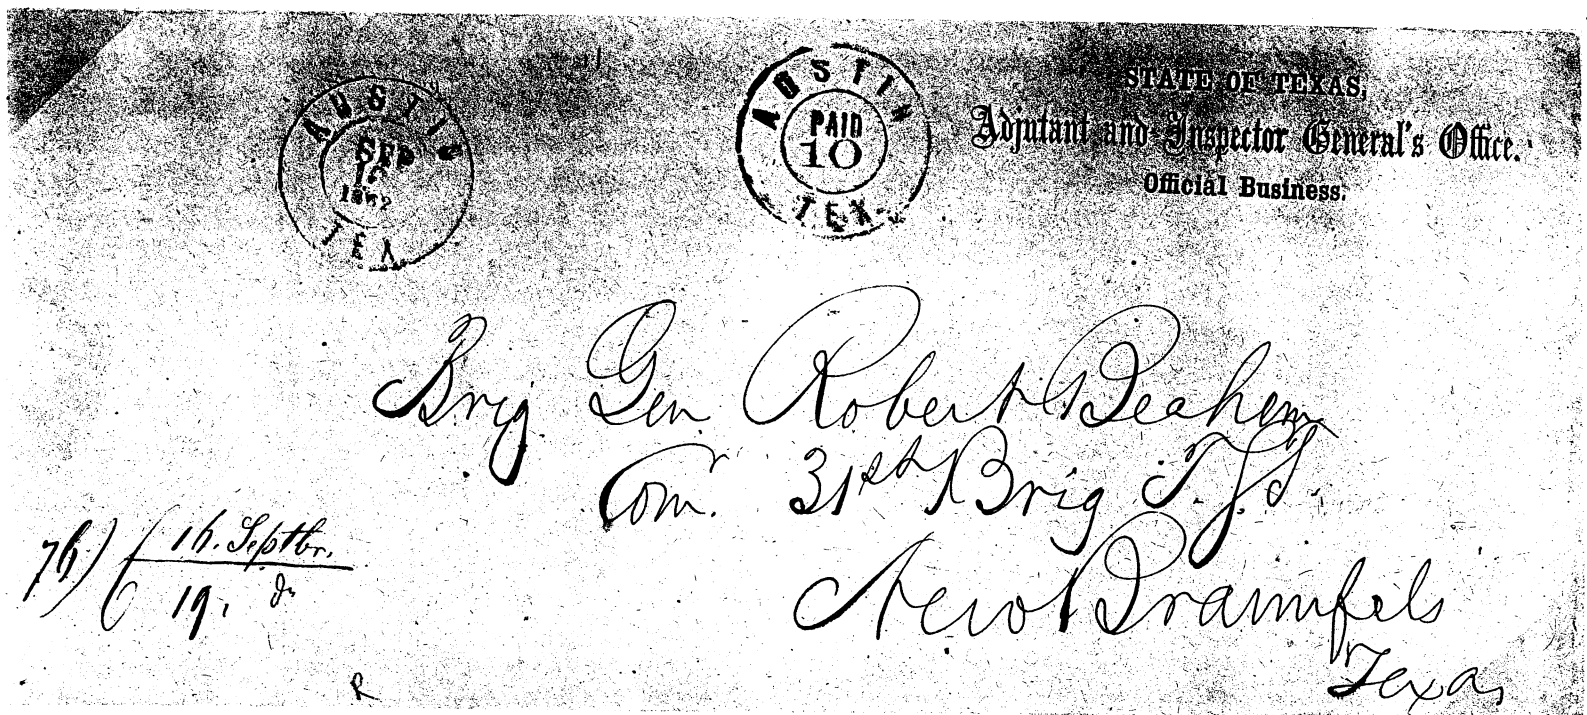 AUSTIN
SEP
16
1862
TEX
AUSTIN
PAID
10
TEX.
STATE OF TEXAS,
Adjutant and Inspector General's Office.
Official Business.
Brig Gen Robert Beahem
Comr. 31st Brig T.S.T.
New Braunfels
Texas
76) 16. Septbr.
19.
R